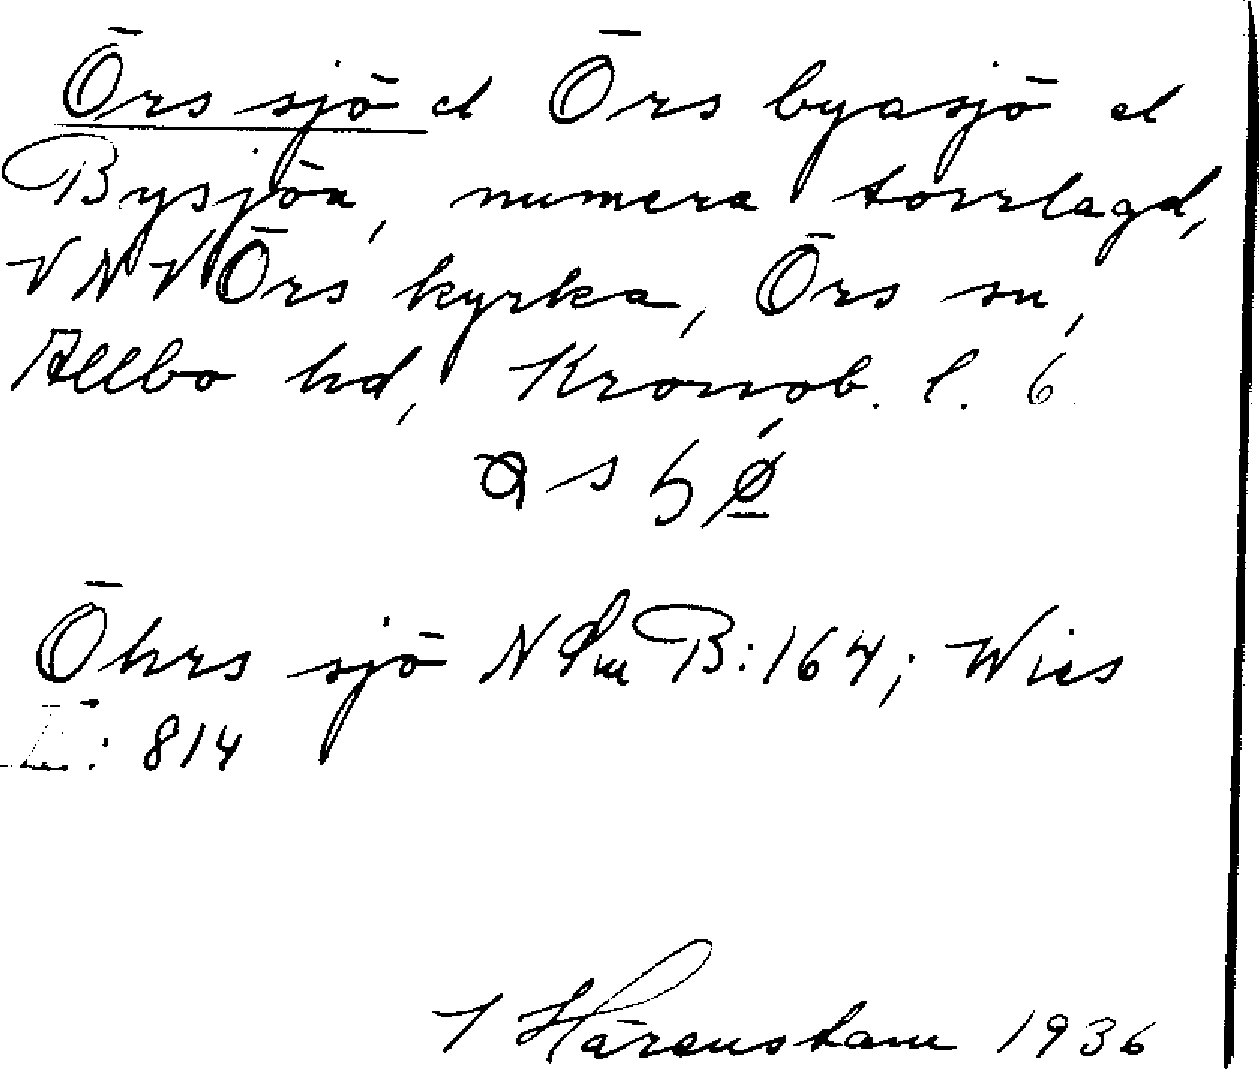 Örs sjö el Örs byasjö el
Bysjön, numera torrlagd,
VNV Örs kyrka, Örs sn,
Allbo hd, Kronob. l. 6
Öhrs sjö NSm B:164; Wies
: 814
Härenstam 1936